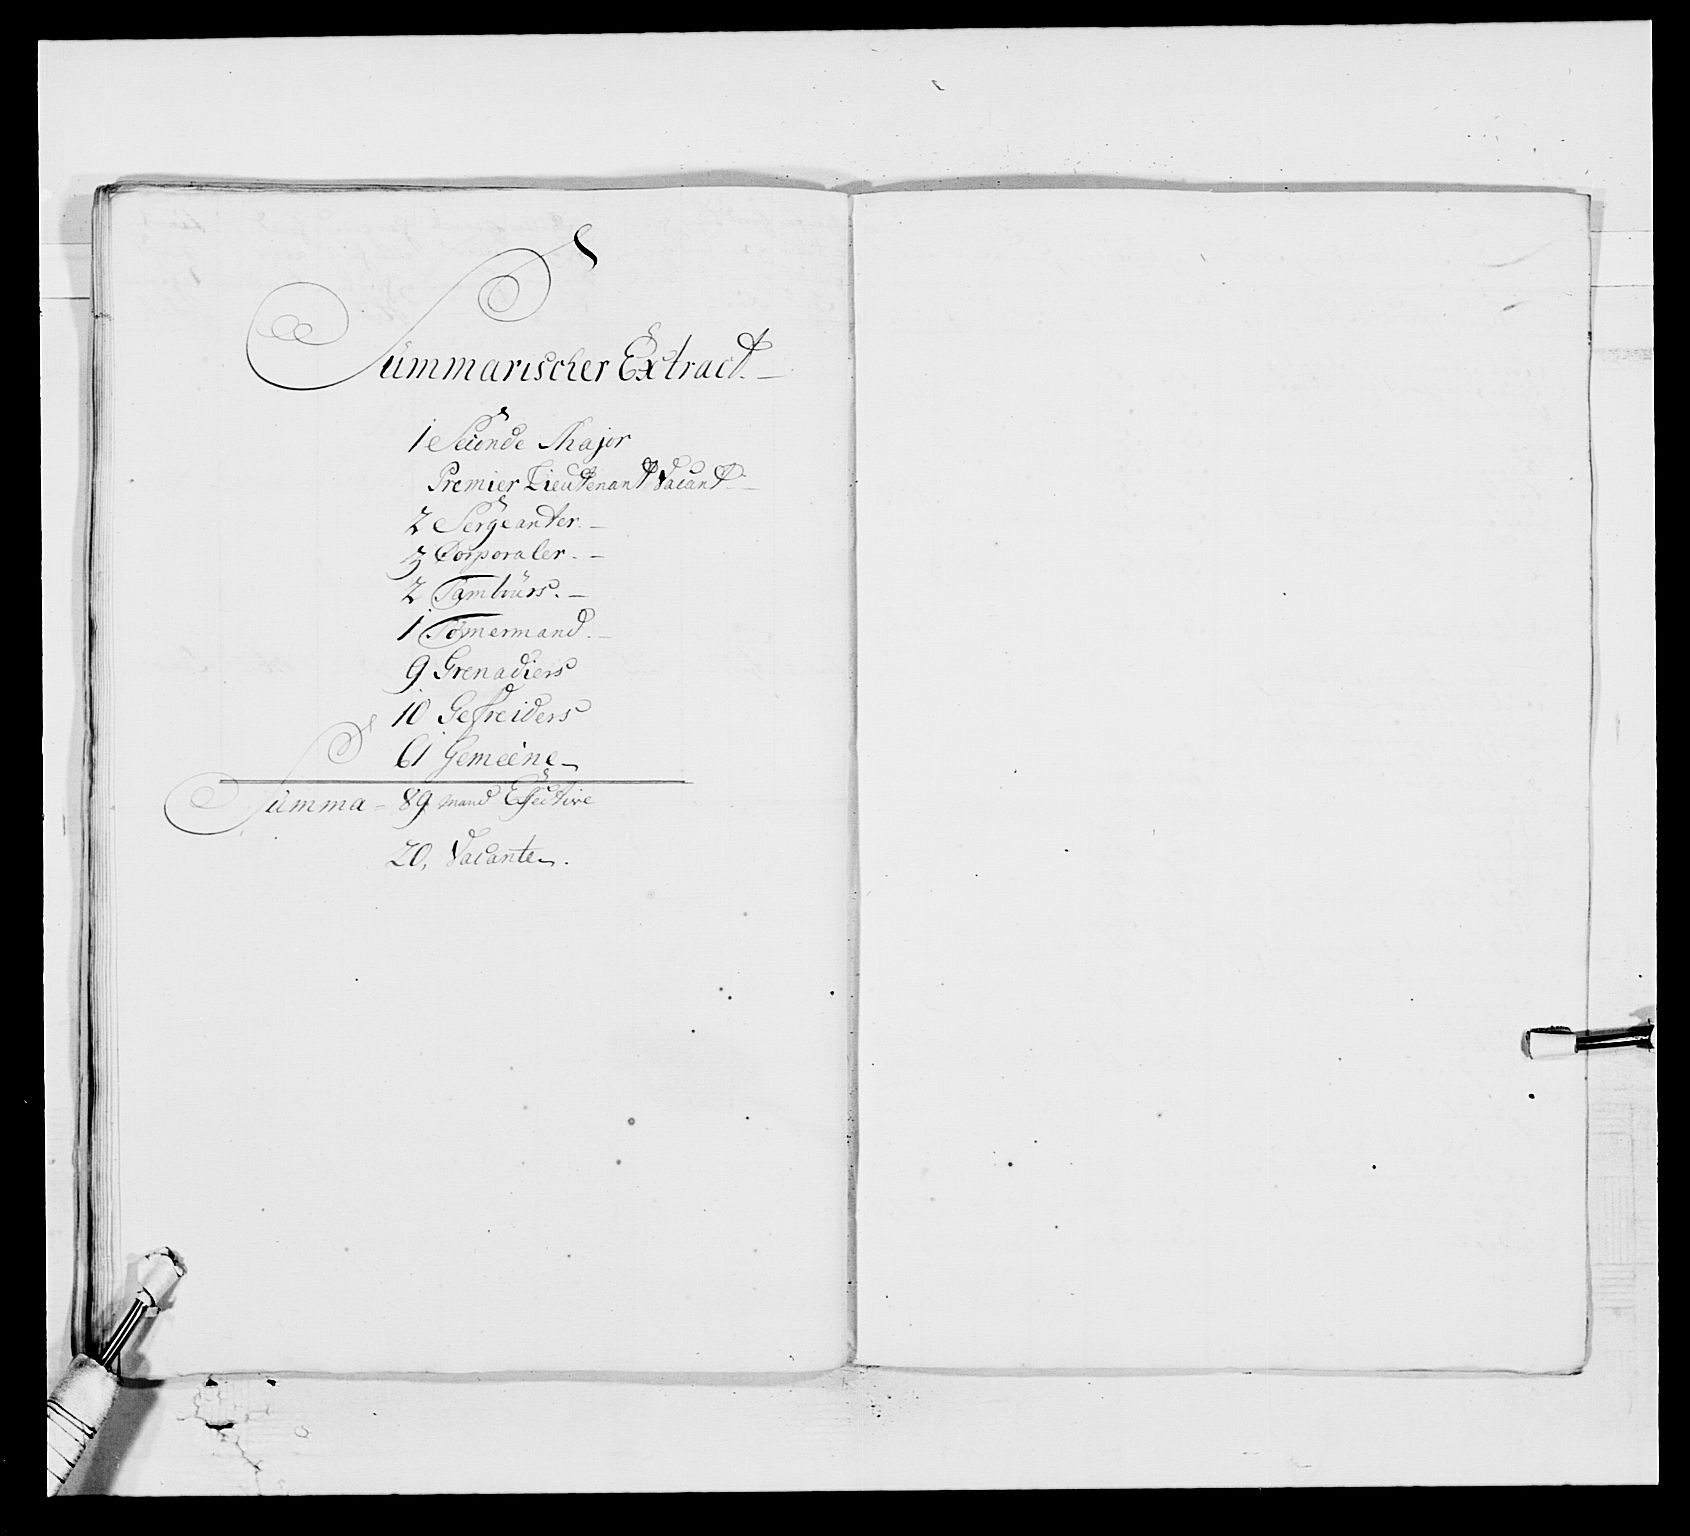 Summarischer Extract. —
1 Seünde Major
Premier Lieutenant Vacant —
2 Sergeanter. —
3 Corporaler. —
2 Tambürs. —
1 Tømermand. —
9 Grenadiers
10 Gefreiders
61 Gemeene
Summa = 89 mand Effective
20, Vacante.